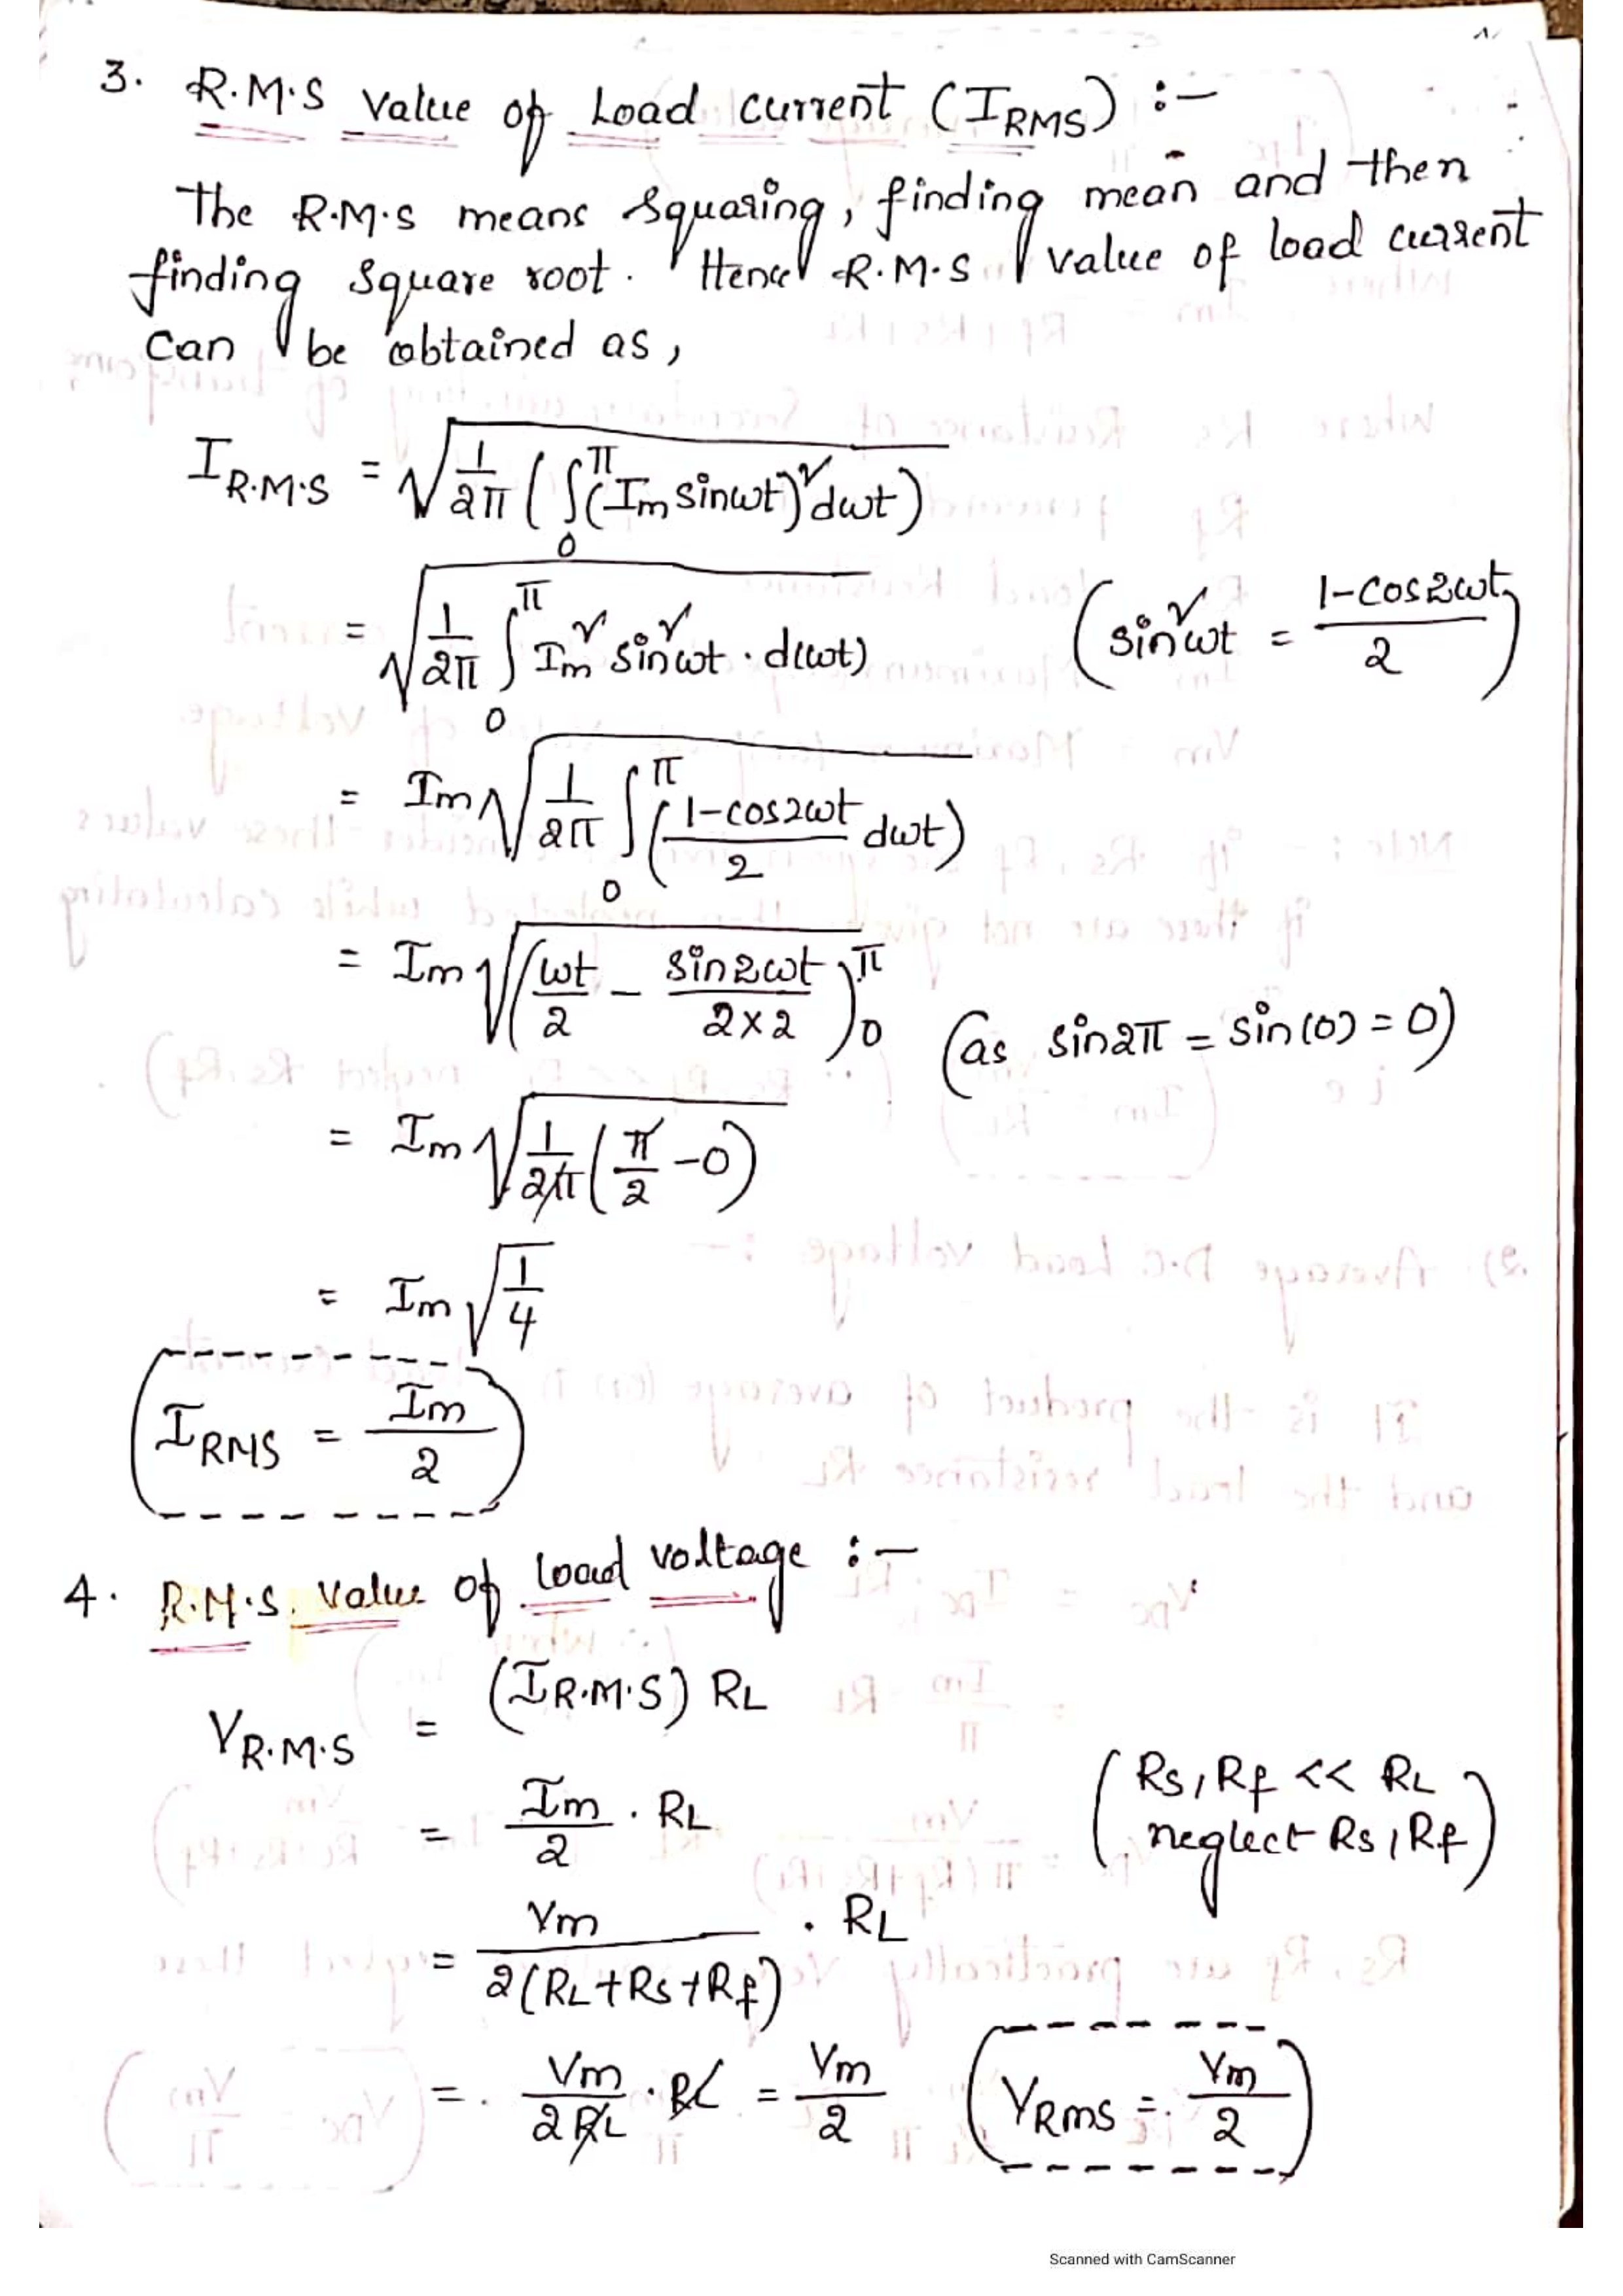 3. R.M.S value of Load current (I_RMS) :-
The R.M.S means squaring, finding mean and then
finding square root. Hence R.M.S value of load current
can be obtained as,
I_R.M.S = √(1/2π (∫_0^π (Im sinωt)² dωt))
= √(1/2π ∫_0^π Im² sin²ωt · d(ωt)) (sin²ωt = (1-cos2ωt)/2)
= Im √(1/2π ∫_0^π ((1-cos2ωt)/2 dωt))
= Im √((ωt/2 - sin2ωt/(2×2))_0^π) (as sin2π = sin(0) = 0)
= Im √(1/2π (π/2 - 0))
= Im √(1/4)
I_RMS = Im/2
4. R.M.S. value of load voltage :-
V_R.M.S = (I_R.M.S) RL
= Im/2 · RL (Rs, Rf << RL
neglect Rs, Rf)
= Vm/(2(RL+Rs+Rf)) · RL
= Vm/(2RL) · RL = Vm/2 (V_Rms = Vm/2)
Scanned with CamScanner